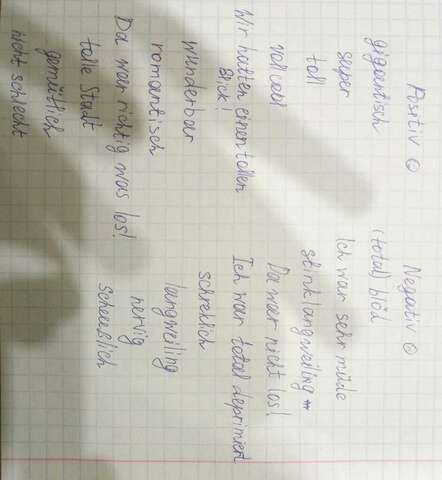 Positiv ☺
gigantisch
super
toll
voll cool
Wir hatten einen tollen
Blick!
wunderbar
romantisch
Da war richtig was los!
tolle Stadt
gemütlich
nicht schlecht
Negativ ☹
(total) blöd
Ich war sehr müde
stinklangweiling *
Da war nicht los!
Ich war total deprimiert
schreklich
langweiling
nervig
scheeßlich